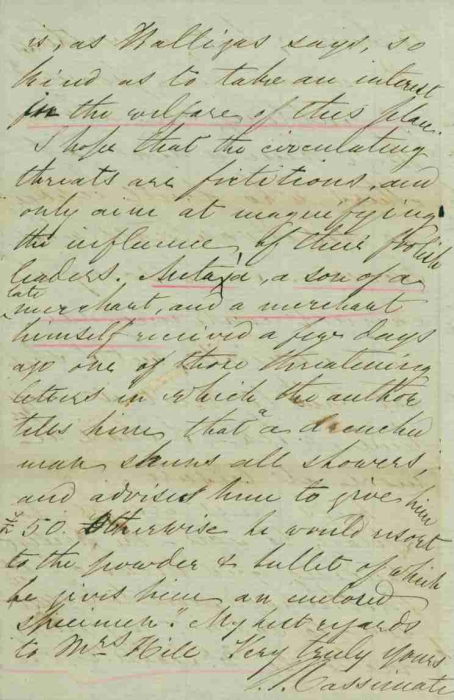 is, as Halligas says, so
kind as to take an interest
in the welfare of this plan.
I hope that the circulating
threats are fictitious, and
only aim at magnifying
the influence of their foolish
leaders. a son of a
late merchant, and a merchant
himself received a few days
ago one of those threatening
letters in which the author
tells him that "a drenched
man shuns all showers,
and advises him to give him
£50 Otherwise he would resort
to the powder & bullet of which
he gives him an enclosed
specimen." My best regards
to Mrs Very truly yours